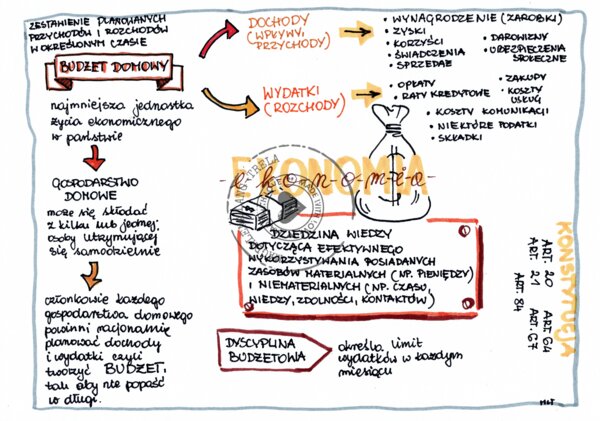 ZESTAWIENIE PLANOWANYCH
PRZYCHODÓW I ROZCHODÓW
W OKREŚLONYM CZASIE
BUDŻET DOMOWY
najmniejsza jednostka
życia ekonomicznego
w państwie
GOSPODARSTWO
DOMOWE
może się składać
z kilku lub jednej
osoby utrzymującej
się samodzielnie
członkowie każdego
gospodarstwa domowego
powinni racjonalnie
planować dochody
i wydatki czyli
tworzyć BUDŻET,
tak aby nie popaść
w długi.
DOCHODY
(WPŁYWY,
PRZYCHODY)
• WYNAGRODZENIE (ZAROBKI)
• ZYSKI
• KORZYŚCI
• ŚWIADCZENIA
• SPRZEDAŻ
• DAROWIZNY
• UBEZPIECZENIA
SPOŁECZNE
WYDATKI
(ROZCHODY)
• OPŁATY
• RATY KREDYTOWE
• ZAKUPY
• KOSZTY
USŁUG
• KOSZTY KOMUNIKACJI
• NIEKTÓRE PODATKI
• SKŁADKI
EKONOMIA
-e-k-o-n-o-m-i-a-
DZIEDZINA WIEDZY
DOTYCZĄCA EFEKTYWNEGO
WYKORZYSTYWANIA POSIADANYCH
ZASOBÓW MATERIALNYCH (NP. PIENIĘDZY)
I NIEMATERIALNYCH (NP. CZASU,
WIEDZY, ZDOLNOŚCI, KONTAKTÓW)
DYSCYPLINA
BUDŻETOWA
określa limit
wydatków w każdym
miesiącu
KONSTYTUCJA
ART. 20
ART. 21
ART. 84
ART. 64
ART. 67